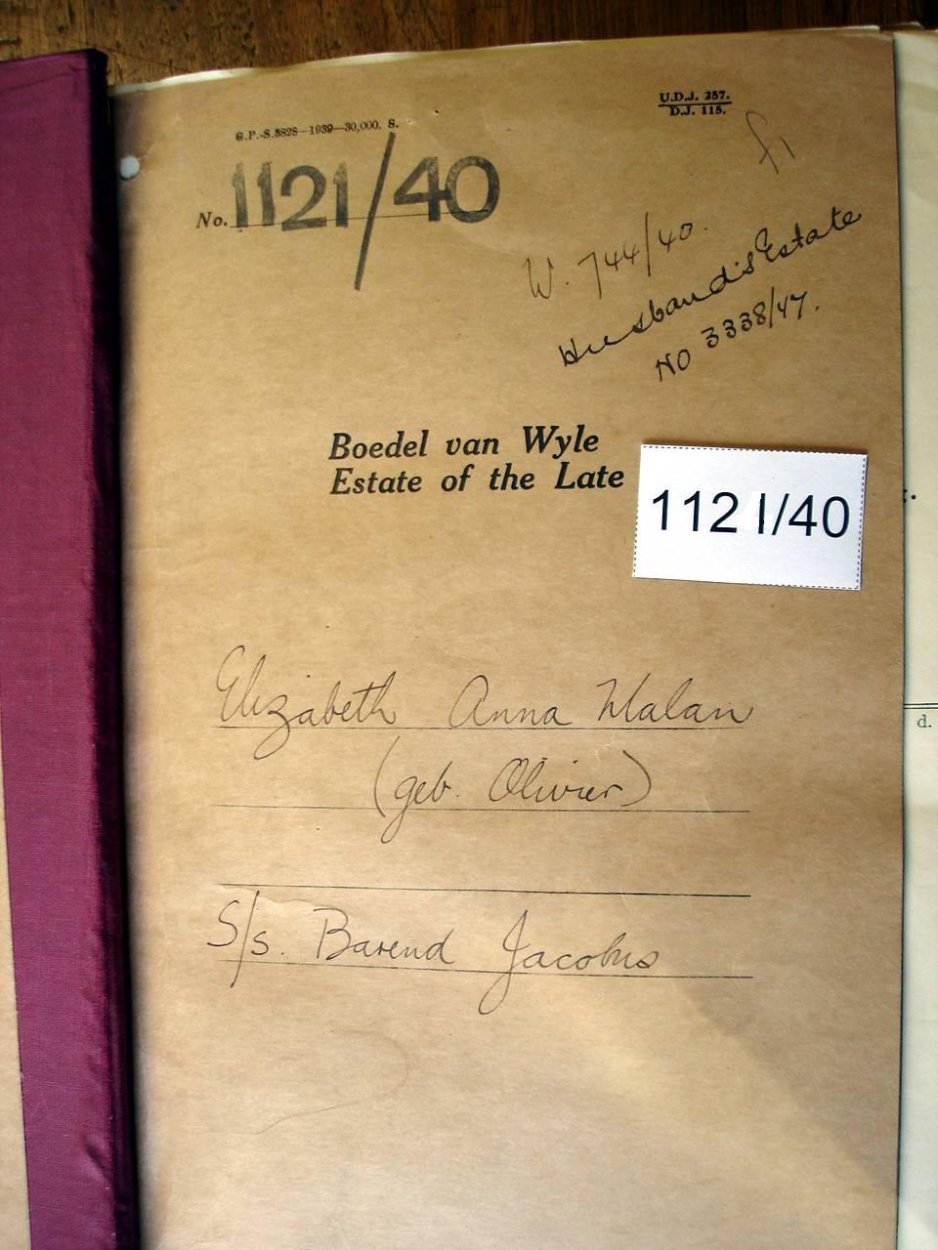 U.D.J. 257.
D.J. 115.
G.P.-S.3828—1939—30,000. S.
No. 1121/40
W. 744/40.
Husband's Estate
NO 3338/47.
Boedel van Wyle
Estate of the Late
1121/40
Elizabeth Anna Malan
(geb. Olivier)
S/s. Barend Jacobus
d.